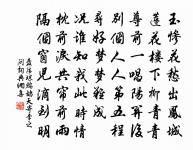 玉慘花愁出鳳城
蓮花樓下柳青青
尊前一唱陽關後
別個人人第五程
尋好夢夢難成
況誰知我此時情
枕前淚共簾前雨
隔個窗兒滴到明
聶勝瓊鷓鴣天寄李之
問